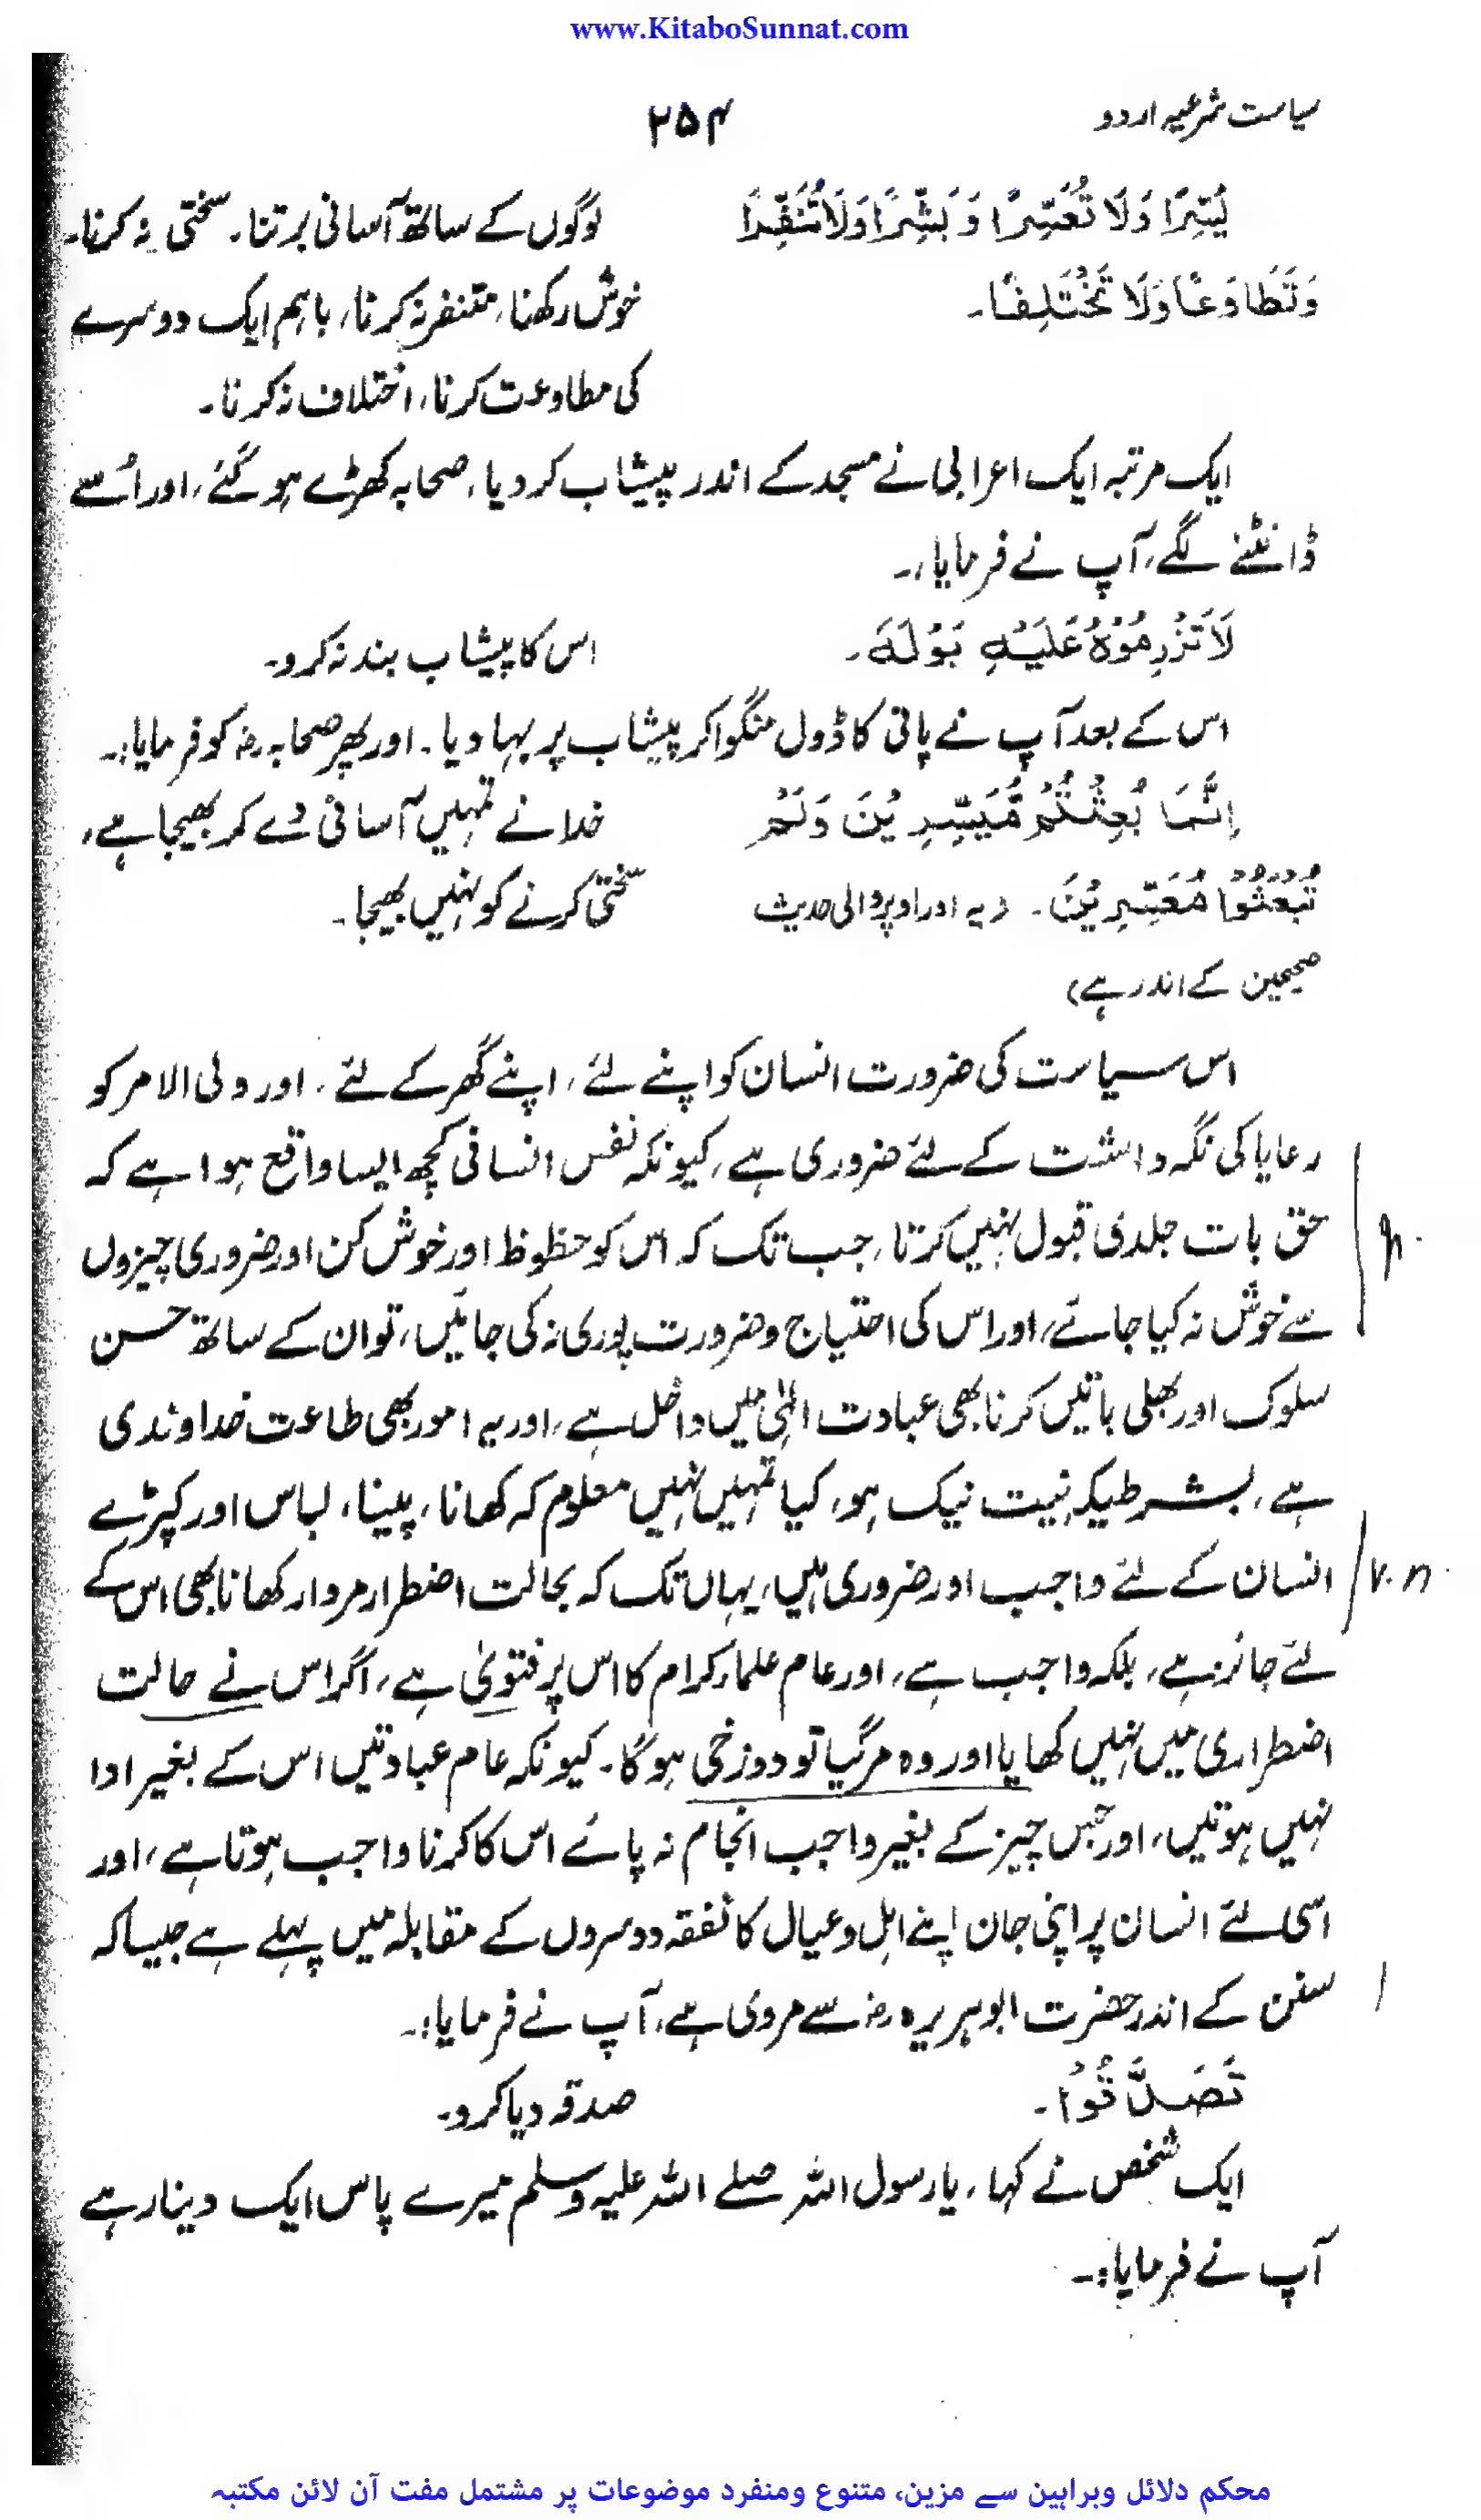 www.KitaboSunnat.com
سیاست شرعیہ اردو ۲۵۴
یَسِّرَا وَلَا تُعَسِّرَا وَبَشِّرَا وَلَا تُنَفِّرَا لوگوں کے ساتھ آسانی برتنا۔ سختی نہ کرنا۔
وَتَطَاوَعَا وَلَا تَخْتَلِفَا۔ خوش رکھنا، متنفر نہ کرنا، باہم ایک دوسرے
کی مطاوعت کرنا، اختلاف نہ کرنا۔
ایک مرتبہ ایک اعرابی نے مسجد کے اندر پیشاب کر دیا، صحابہ کھڑے ہو گئے، اور اُسے
ڈانٹنے لگے، آپ نے فرمایا:۔
لَا تَزْرِمُوْهُ عَلَیْهِ بَوْلَهٗ۔ اس کا پیشاب بند نہ کرو۔
اس کے بعد آپ نے پانی کا ڈول منگوا کر پیشاب پر بہا دیا۔ اور پھر صحابہ رض کو فرمایا:۔
اِنَّمَا بُعِثْتُمْ مُّیَسِّرِیْنَ وَلَمْ خدا نے تمہیں آسانی دے کر بھیجا ہے،
تُبْعَثُوْا مُعَسِّرِیْنَ۔ (یہ اور اوپر والی حدیث سختی کرنے کو نہیں بھیجا۔
صحیحین کے اندر ہے)
اس سیاست کی ضرورت انسان کو اپنے لئے، اپنے گھر کے لئے، اور ولی الامر کو
رعایا کی نگہداشت کے لئے ضروری ہے، کیونکہ نفس انسانی کچھ ایسا واقع ہوا ہے کہ
حق بات جلدی قبول نہیں کرتا، جب تک کہ اس کو حظوظ اور خوش کن اور ضروری چیزوں
سے خوش نہ کیا جائے، اور اس کی احتیاج وضرورت پوری نہ کی جائیں، تو ان کے ساتھ حسن
سلوک اور بھلی باتیں کرنا بھی عبادت الٰہی میں داخل ہے، اور یہ امور بھی طاعت خداوندی
ہے، بشرطیکہ نیت نیک ہو، کیا تمہیں نہیں معلوم کہ کھانا، پینا، لباس اور کپڑے
انسان کے لئے واجب اور ضروری ہیں، یہاں تک کہ بحالت اضطرار مردار کھانا بھی اس کے
لئے جائز ہے، بلکہ واجب ہے، اور عام علماء کرام کا اس پر فتویٰ ہے، اگر اس نے حالت
اضطراری میں نہیں کھایا اور وہ مر گیا تو دوزخی ہوگا۔ کیونکہ عام عبادتیں اس کے بغیر ادا
نہیں ہوتیں، اور جس چیز کے بغیر واجب انجام نہ پائے اس کا کرنا واجب ہوتا ہے، اور
اسی لئے انسان پر اپنی جان اپنے اہل وعیال کا نفقہ دوسروں کے مقابلہ میں پہلے ہے جیسا کہ
سنن کے اندر حضرت ابوہریرہ رض سے مروی ہے، آپ نے فرمایا:۔
تَصَدَّقُوْا۔ صدقہ دیا کرو۔
ایک شخص نے کہا، یارسول اللہ صلے اللہ علیہ وسلم میرے پاس ایک دینار ہے
آپ نے فرمایا:۔
v.n
محکم دلائل وبراہین سے مزین، متنوع ومنفرد موضوعات پر مشتمل مفت آن لائن مکتبہ